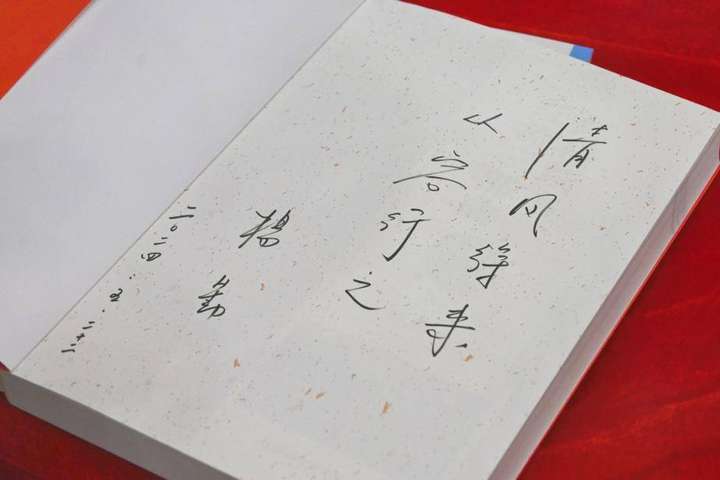 清风徐来
从容行之
杨勤
二〇二四.五.二十二